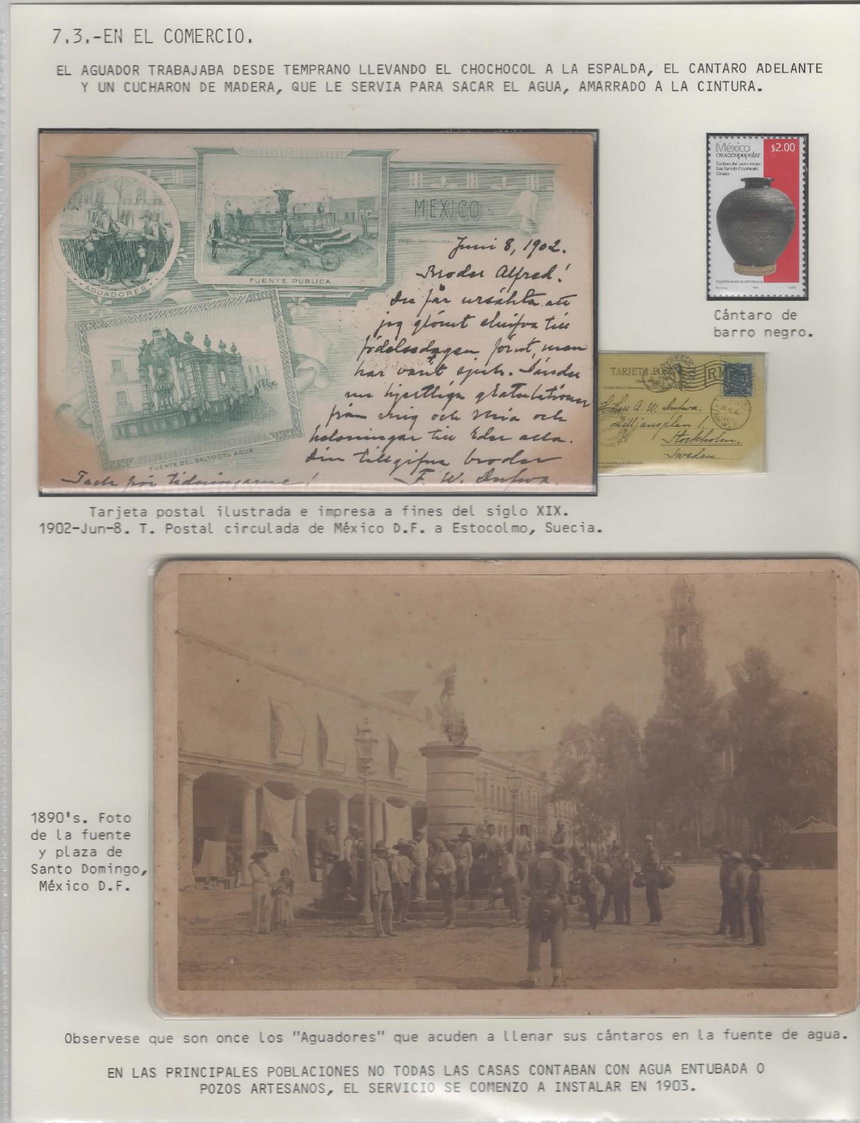 7.3.-EN EL COMERCIO.
EL AGUADOR TRABAJABA DESDE TEMPRANO LLEVANDO EL CHOCHOCOL A LA ESPALDA, EL CANTARO ADELANTE
Y UN CUCHARON DE MADERA, QUE LE SERVIA PARA SACAR EL AGUA, AMARRADO A LA CINTURA.
AGUADORES
FUENTE PUBLICA
MEXICO
FUENTE DEL SALTO DEL AGUA
Juni 8, 1902.
Broder Alfred!
Du får ursäkta att
jag glömt skrifva till
födelsedagen förut, men
har varit sjuk. Sänder
nu hjertliga gratulationer
från mig och Mia och
helsningar till Eder alla.
din tillgifna broder
F. W.
Tack för tidningarne!
México
creaciónpopular
$2.00
Cántaro de
barro negro.
TARJETA POSTAL
A. W.
Lilljansplan 1
Stockholm.
Sweden.
Tarjeta postal ilustrada e impresa a fines del siglo XIX.
1902-Jun-8. T. Postal circulada de México D.F. a Estocolmo, Suecia.
1890's. Foto
de la fuente
y plaza de
Santo Domingo,
México D.F.
Observese que son once los "Aguadores" que acuden a llenar sus cántaros en la fuente de agua.
EN LAS PRINCIPALES POBLACIONES NO TODAS LAS CASAS CONTABAN CON AGUA ENTUBADA O
POZOS ARTESANOS, EL SERVICIO SE COMENZO A INSTALAR EN 1903.